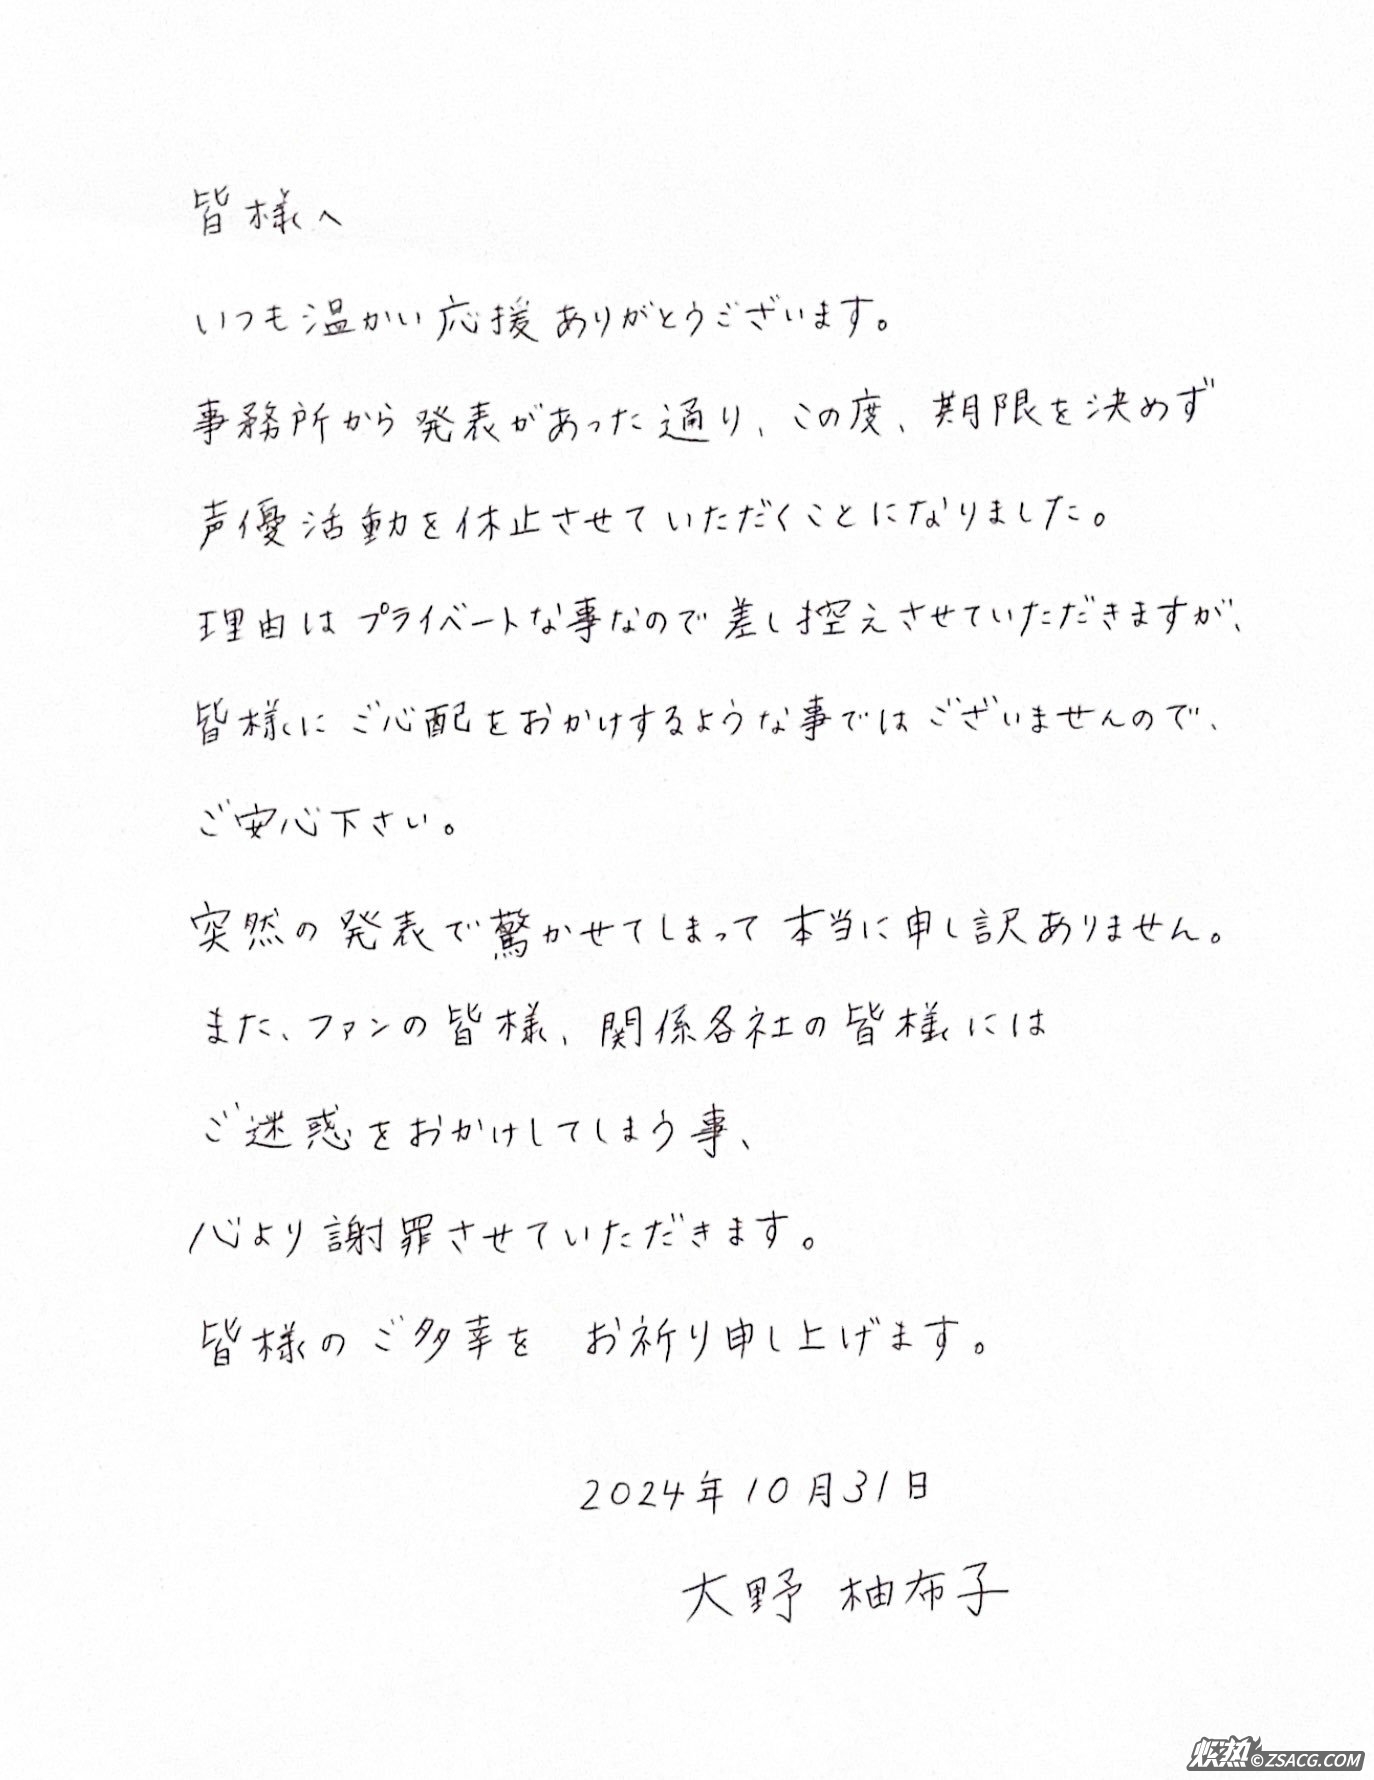 皆様へ
いつも温かい応援ありがとうございます。
事務所から発表があった通り、この度、期限を決めず
声優活動を休止させていただくことになりました。
理由はプライベートな事なので差し控えさせていただきますが、
皆様にご心配をおかけするような事ではございませんので、
ご安心下さい。
突然の発表で驚かせてしまって本当に申し訳ありません。
また、ファンの皆様、関係各社の皆様には
ご迷惑をおかけしてしまう事、
心より謝罪させていただきます。
皆様のご多幸を お祈り申し上げます。
2024年10月31日
大野 柚布子
炽热©ZSACG.COM